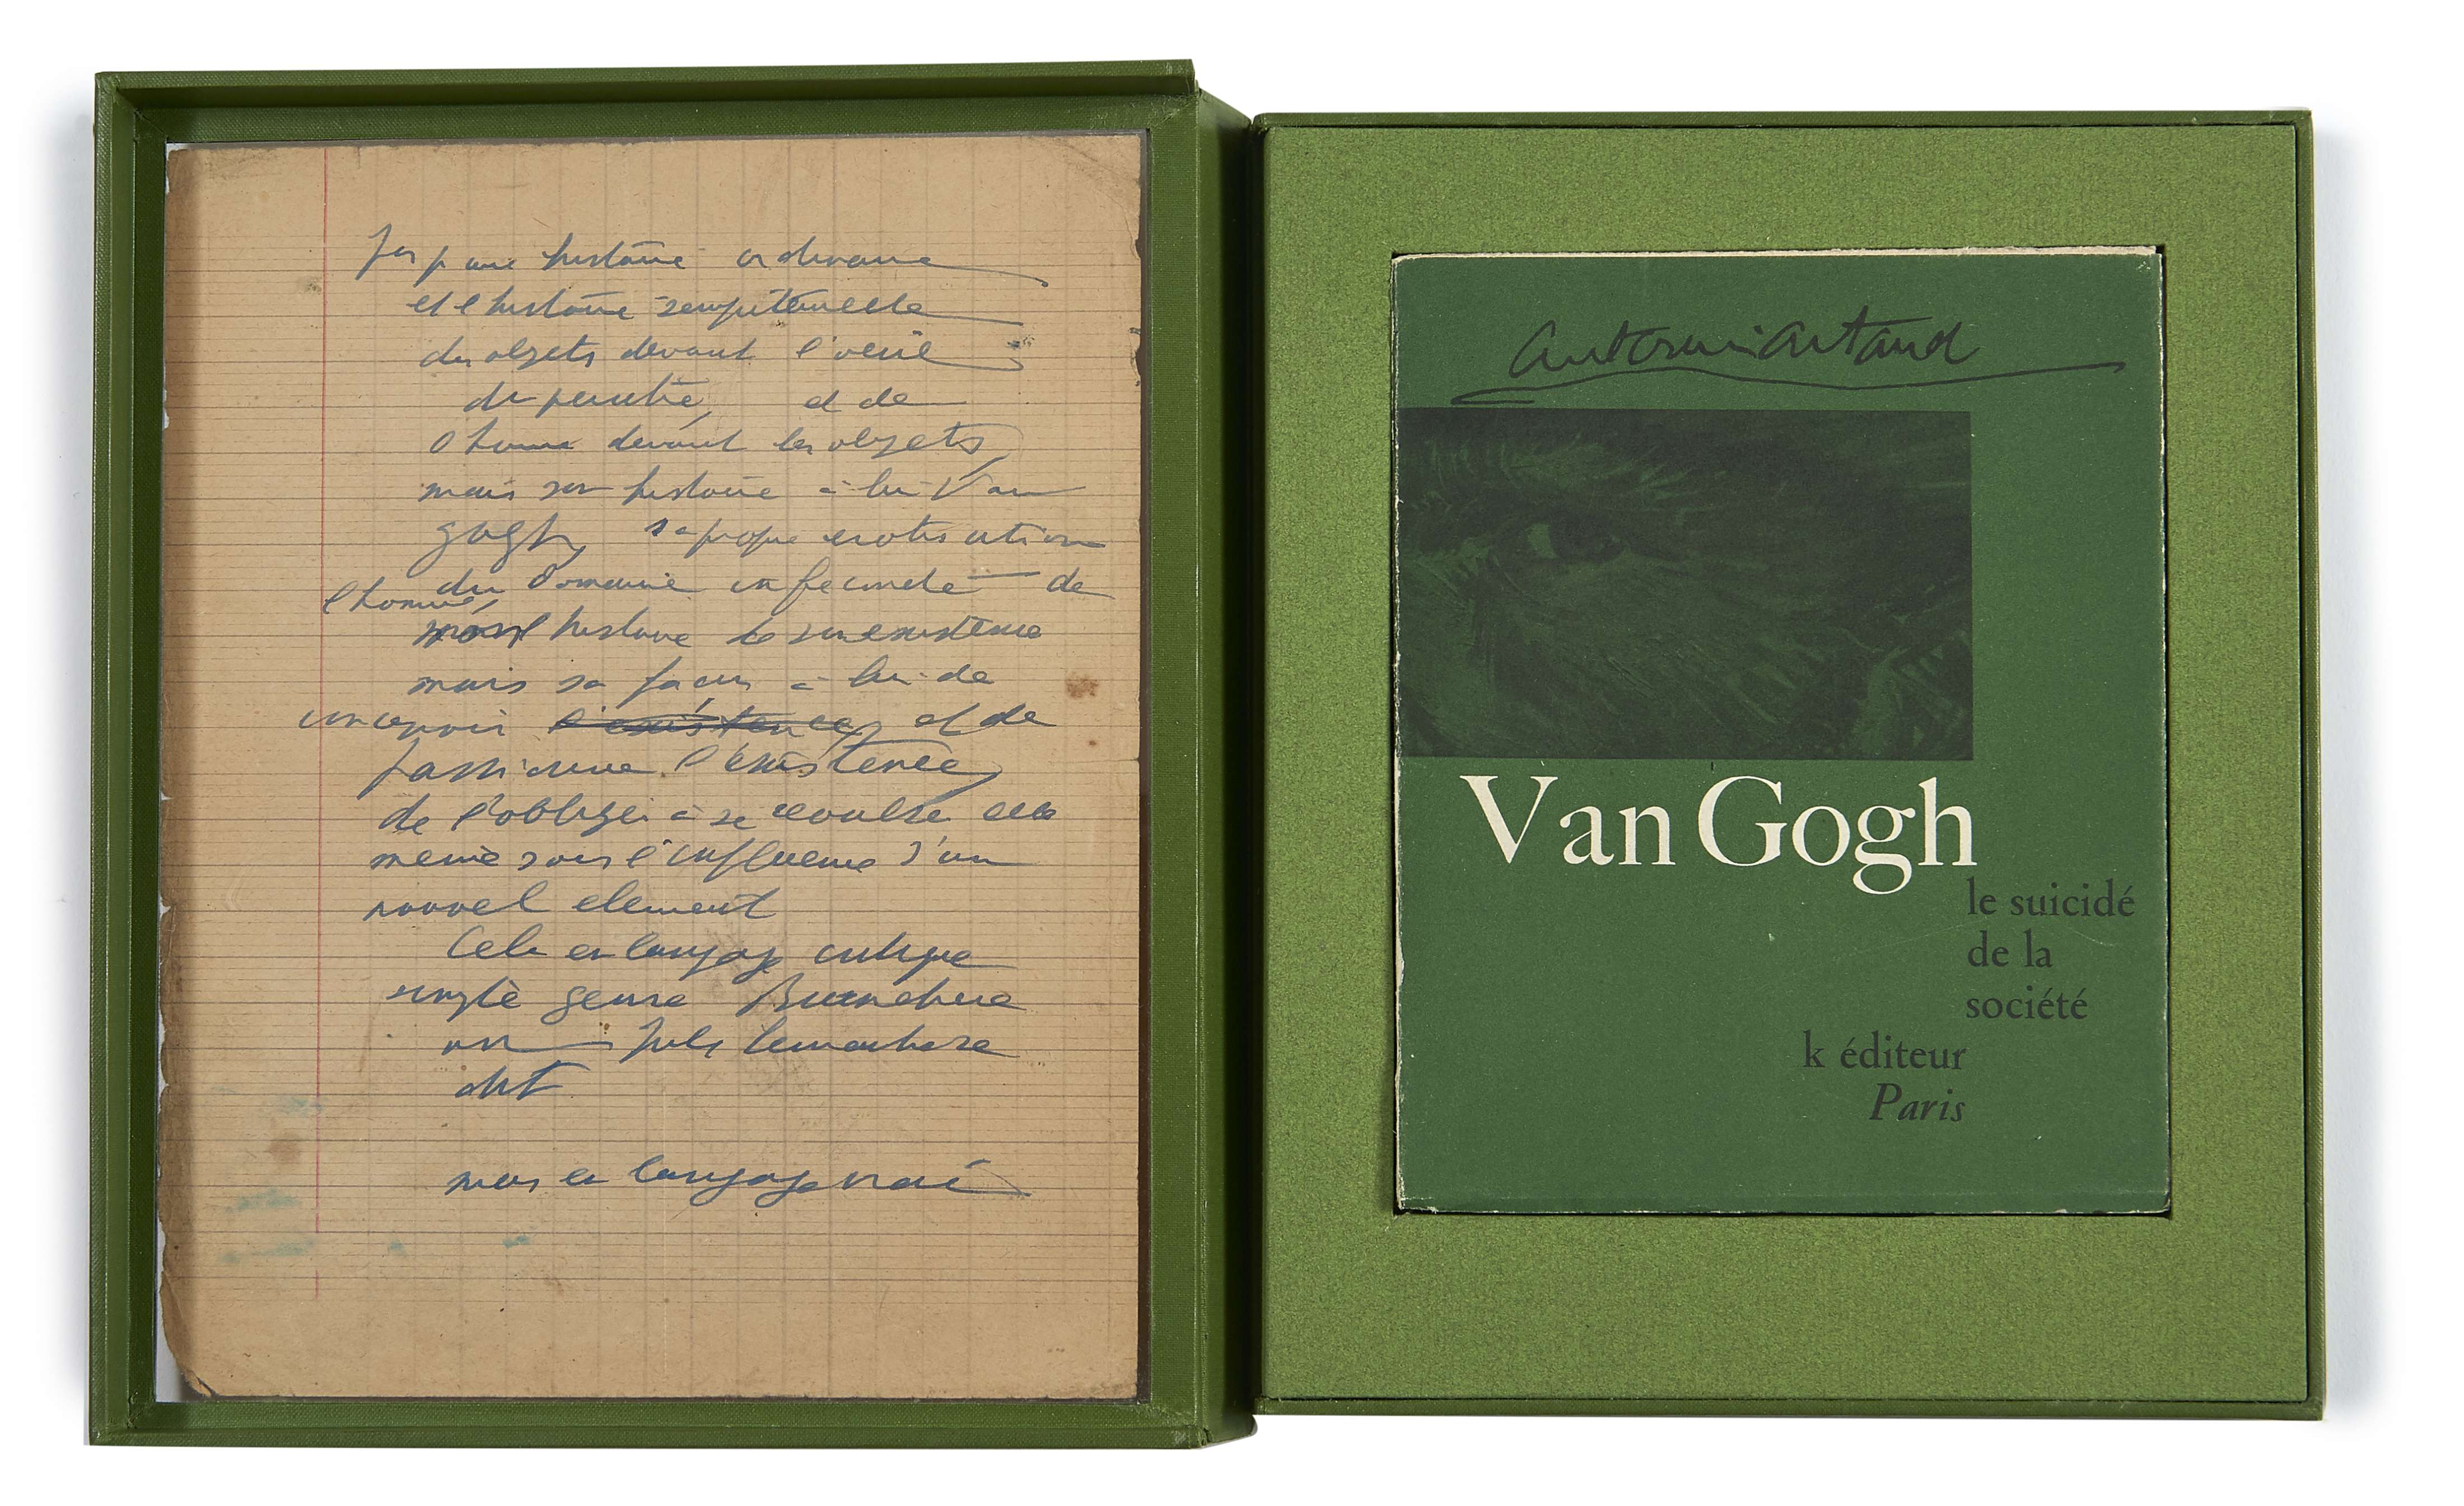 une histoire ordinaire
et l histoire sempiternelle
des objets devant l'oeil
du peintre, et de
l homme devant les objets,
mais son histoire à lui Van
gogh, sa propre erotisation
du domaine infeconde de
l homme,
histoire de son existence
mais sa façon à lui de
concevoir l'existence, et de
passionner l'existence,
de l'obliger à se revulser elle
meme sous l'influence d'un
nouvel element
Cela en langage critique
simple genre Brunetiere
ou Jules Lemaitre
dit
mais en langage vrai
antonin artaud
Van Gogh
le suicidé
de la
société
k éditeur
Paris